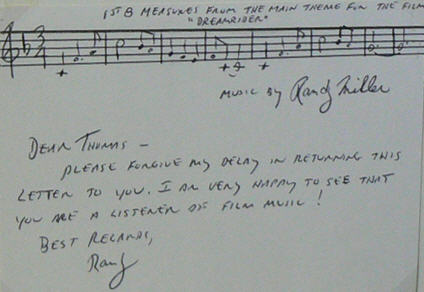 1ST 8 MEASURES FROM THE MAIN THEME FOR THE FILM
"DREAMRIDER"
3
MUSIC BY Randy Miller
DEAR THOMAS —
PLEASE FORGIVE MY DELAY IN RETURNING THIS
LETTER TO YOU. I AM VERY HAPPY TO SEE THAT
YOU ARE A LISTENER OF FILM MUSIC!
BEST REGARDS,
Randy